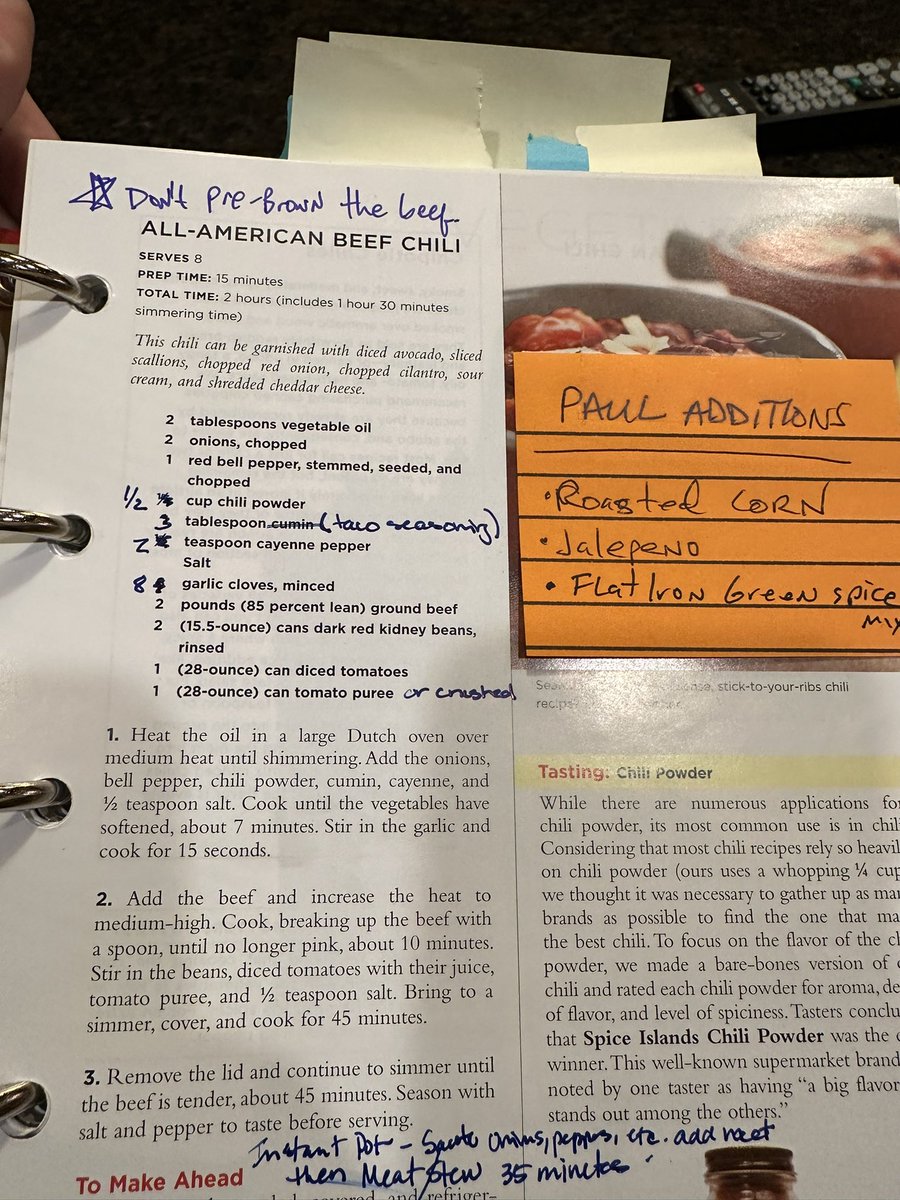 ☆ Don't pre-Brown the beef.
ALL-AMERICAN BEEF CHILI
SERVES 8
PREP TIME: 15 minutes
TOTAL TIME: 2 hours (includes 1 hour 30 minutes
simmering time)
This chili can be garnished with diced avocado, sliced
scallions, chopped red onion, chopped cilantro, sour
cream, and shredded cheddar cheese.
2 tablespoons vegetable oil
2 onions, chopped
1 red bell pepper, stemmed, seeded, and
chopped
1/2 cup chili powder
3 tablespoon cumin (taco seasoning)
2 teaspoon cayenne pepper
Salt
8 garlic cloves, minced
2 pounds (85 percent lean) ground beef
2 (15.5-ounce) cans dark red kidney beans,
rinsed
1 (28-ounce) can diced tomatoes
1 (28-ounce) can tomato puree or crushed
1. Heat the oil in a large Dutch oven over
medium heat until shimmering. Add the onions,
bell pepper, chili powder, cumin, cayenne, and
½ teaspoon salt. Cook until the vegetables have
softened, about 7 minutes. Stir in the garlic and
cook for 15 seconds.
2. Add the beef and increase the heat to
medium-high. Cook, breaking up the beef with
a spoon, until no longer pink, about 10 minutes.
Stir in the beans, diced tomatoes with their juice,
tomato puree, and ½ teaspoon salt. Bring to a
simmer, cover, and cook for 45 minutes.
3. Remove the lid and continue to simmer until
the beef is tender, about 45 minutes. Season with
salt and pepper to taste before serving.
Instant Pot - Saute onions, peppers, etc. add meat
then Meat/Stew 35 minutes
To Make Ahead
PAUL ADDITIONS
• Roasted CORN
• Jalepeno
• Flat Iron Green spice
Mix
stick-to-your-ribs chili
Tasting: Chili Powder
While there are numerous applications for
chili powder, its most common use is in chil
Considering that most chili recipes rely so heavil
on chili powder (ours uses a whopping ¼ cup
we thought it was necessary to gather up as man
brands as possible to find the one that ma
the best chili. To focus on the flavor of the ch
powder, we made a bare-bones version of
chili and rated each chili powder for aroma, de
of flavor, and level of spiciness. Tasters conclu
that Spice Islands Chili Powder was the
winner. This well-known supermarket brand
noted by one taster as having “a big flavor
stands out among the others.”